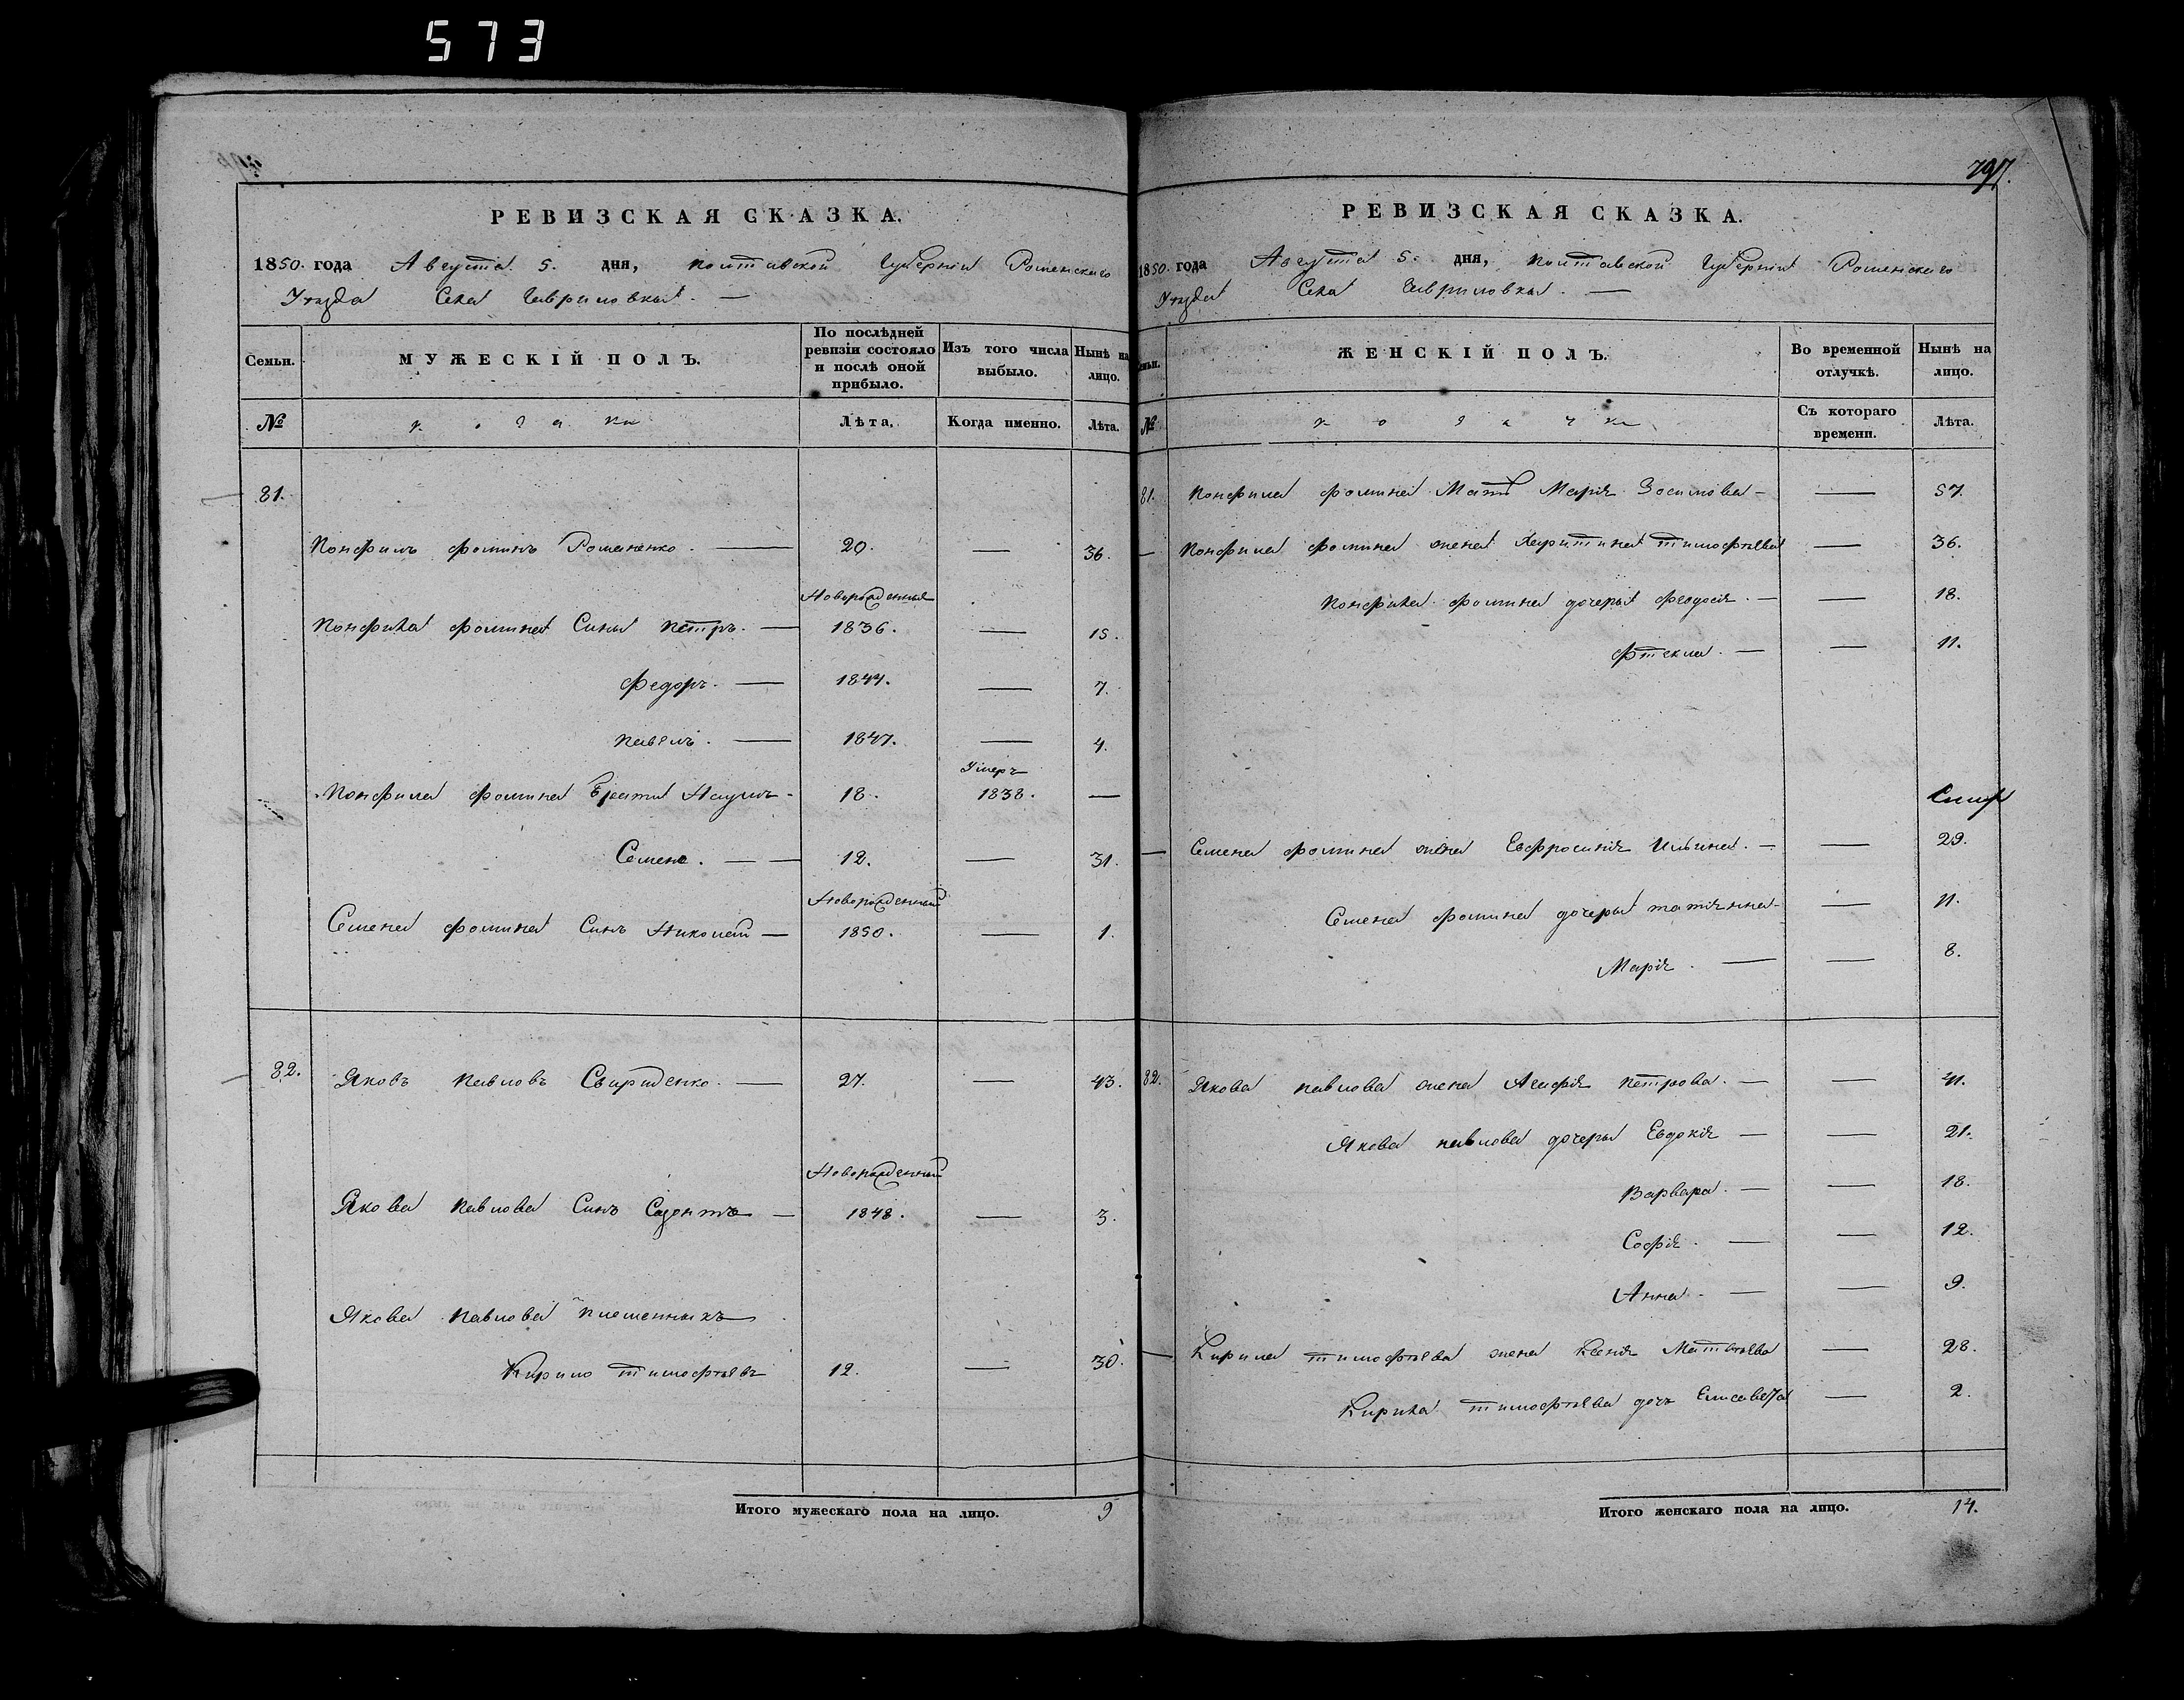 573
РЕВИЗСКАЯ СКАЗКА.
1850. года Августа 5. дня, Полтавской Губерніи Роменскаго
Уѣзда Села Гавриловки. —
Семьи. МУЖЕСКІЙ ПОЛЪ. По послѣдней ревизіи состояло и послѣ оной прибыло. Изъ того числа выбыло. Нынѣ на лицо.
№ Козаки Лѣта. Когда именно. Лѣта.
81.
Понфилъ Фоминъ Романенко. — 20. — 36.
Новорожденныя
Понфила Фомина Сины Петръ. — 1836. — 15.
Федоръ. — 1844. — 7.
Павелъ. — 1847. — 4.
Умеръ
Понфила Фомина Браты Наумъ - 18. 1838. —
Семенъ. — — 12. — 31.
Новорожденный
Семена Фомина Синъ Николай — 1850. — 1.
82. Яковъ Павловъ Свириденко. — 27. — 43.
Новорожденный
Якова Павлова Синъ — 1848. — 3.
Якова Павлова племенникъ
Кирило Тимофѣевъ 12. — 30.
Итого мужескаго пола на лицо. 9
797.
РЕВИЗСКАЯ СКАЗКА.
1850. года Августа 5. дня, Полтавской Губерніи Роменскаго
Уѣзда Села Гавриловки. —
Семьи. ЖЕНСКІЙ ПОЛЪ. Во временной отлучкѣ. Нынѣ на лицо.
№ Козачки Съ котораго времени. Лѣта.
81. Понфила Фомина Мать Марія Зосимова — — 57.
— Понфила Фомина жена Харитина Тимофѣева — 36.
Понфила Фомина дочеры Феодосія. — — 18.
Фтекла. — — 11.
— Семена Фомина жена Евфросинія Ильина. — — 29.
Семена Фомина дочеры татіянна — — 11.
Марія. — — 8.
82. Якова Павлова жена Агафія Петрова. — — 41.
Якова Павлова дочеры Евдокія — — 21.
Варвара. — — 18.
Софія. — — 12.
Анна. — — 9.
— Кирила тимофѣева жена Ксенія Матвѣева — 28.
Кирила тимофѣева дочь Елисавета — 2.
Итого женскаго пола на лицо. 14.